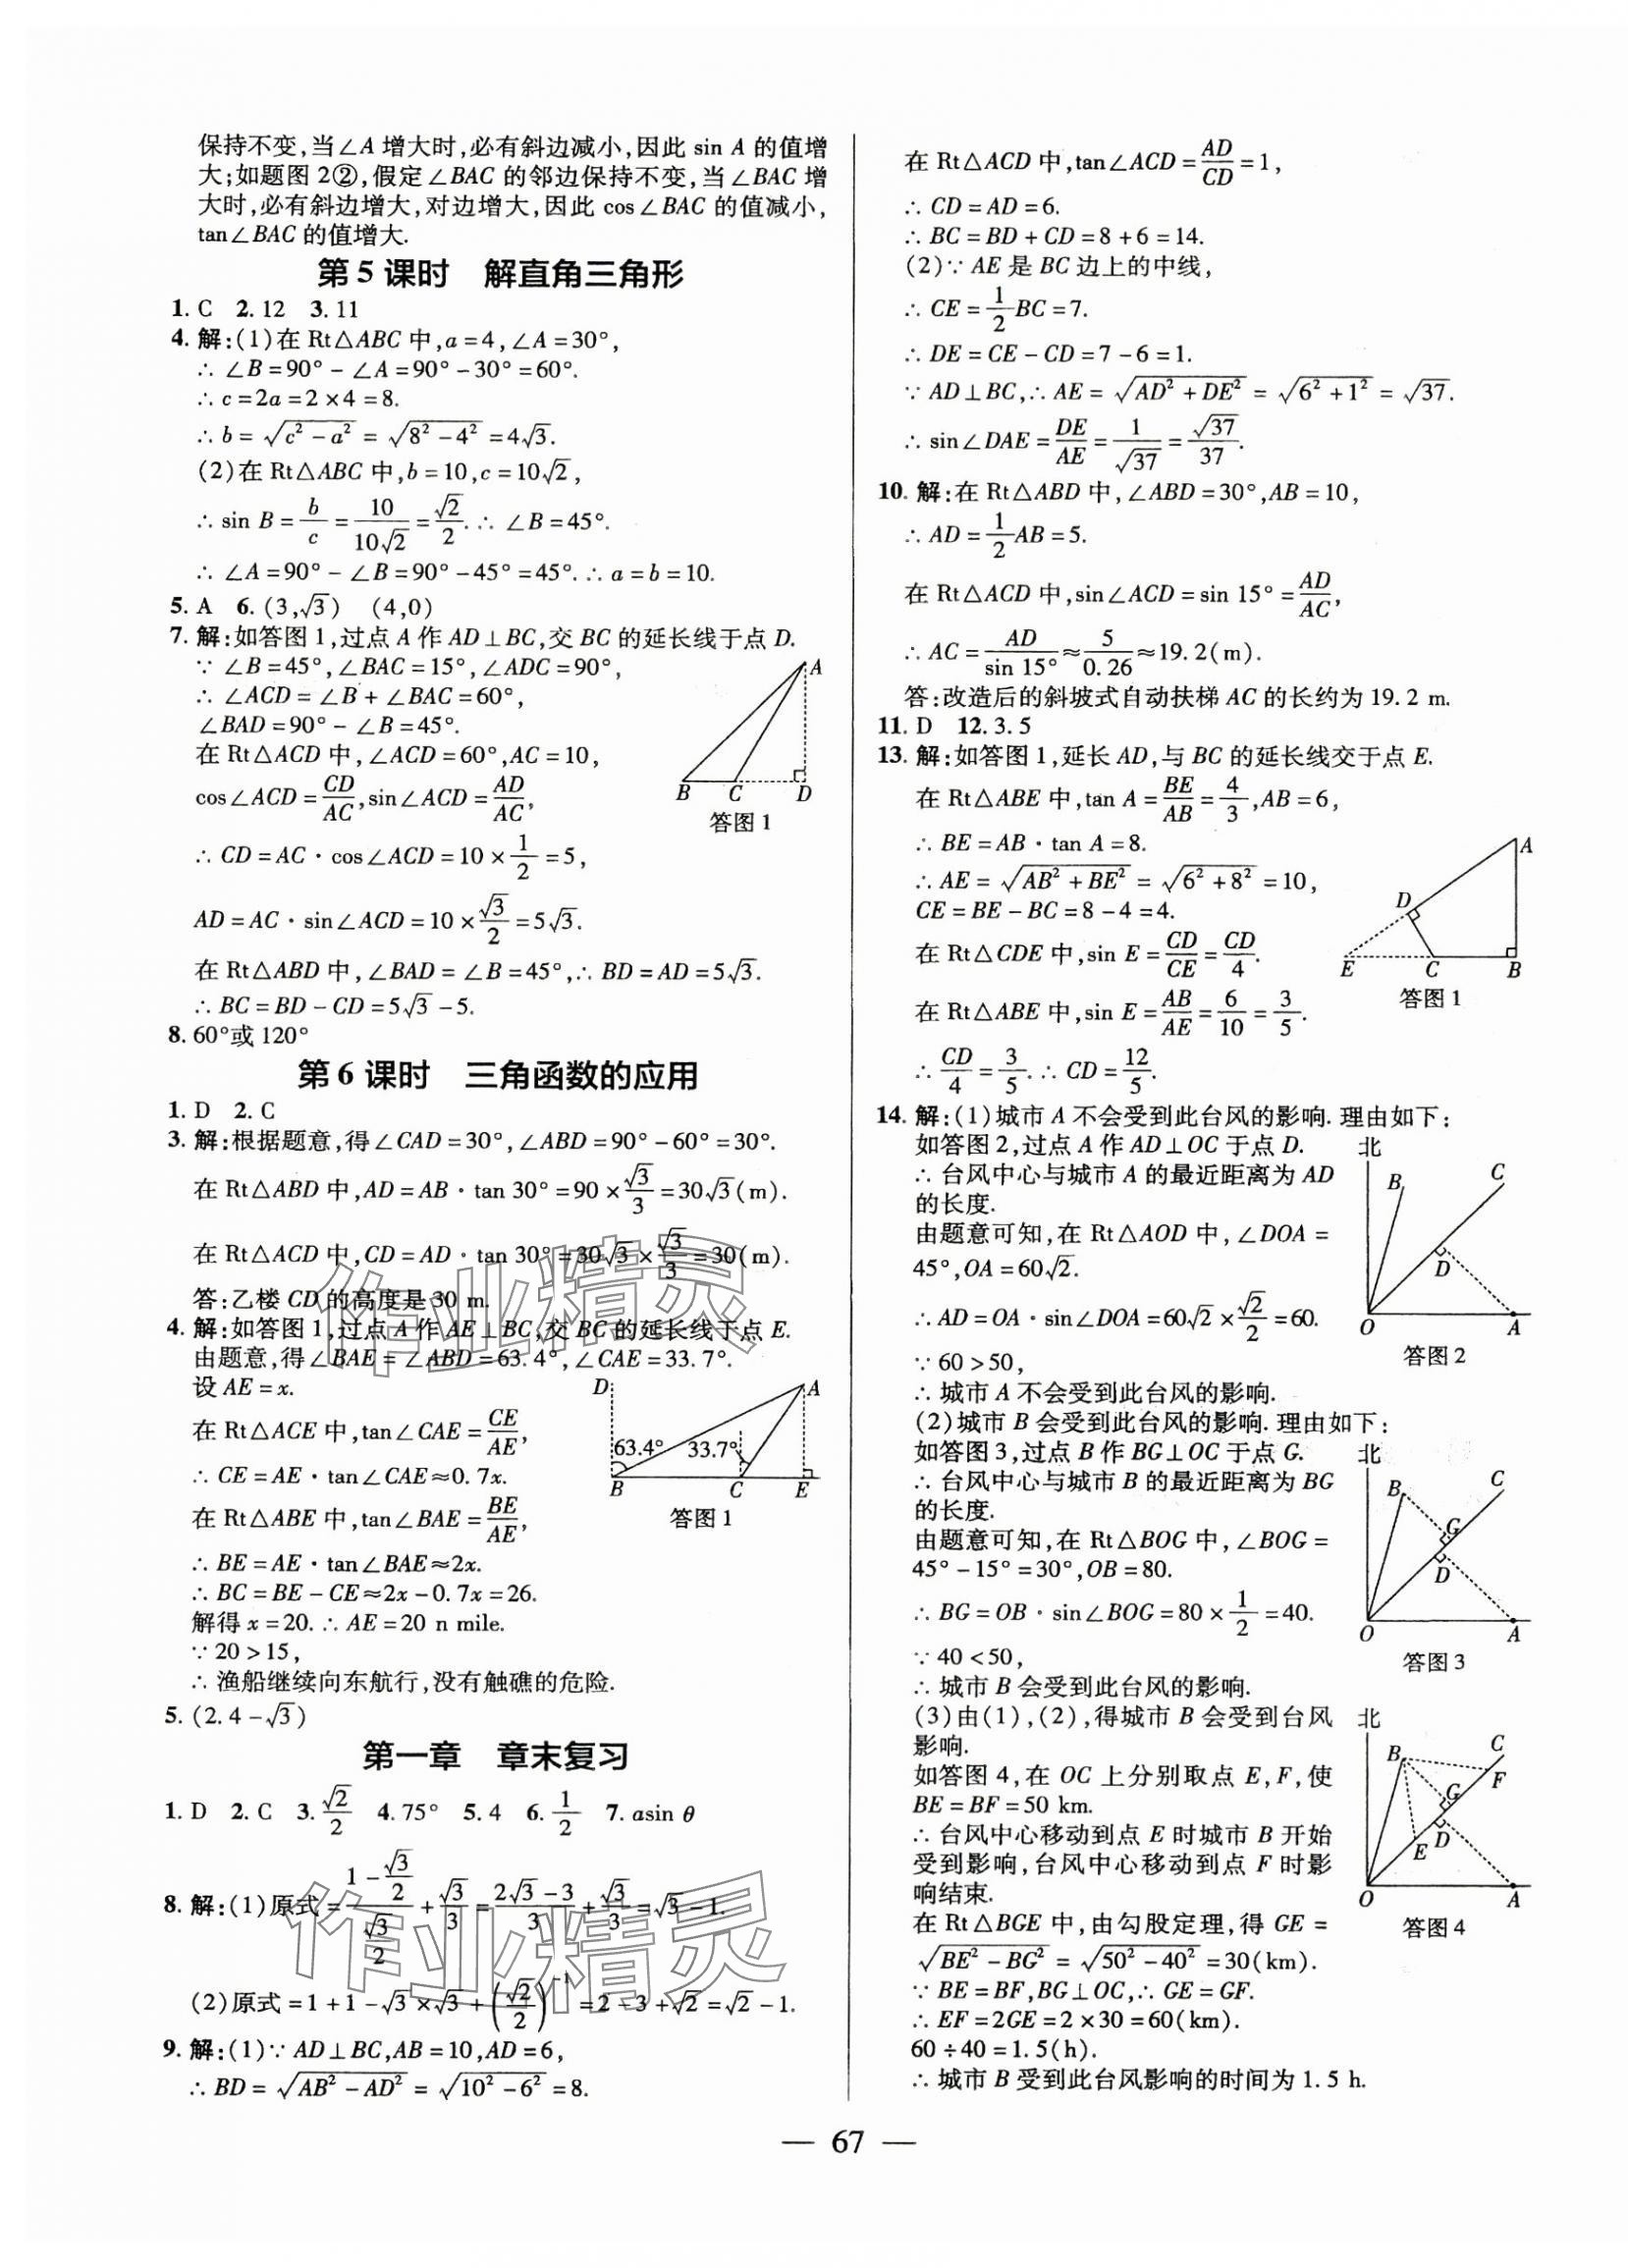 保持不变,当∠A 增大时,必有斜边减小,因此 sin A 的值增
大;如题图 2②,假定∠BAC 的邻边保持不变,当∠BAC 增
大时,必有斜边增大,对边增大,因此 cos∠BAC 的值减小,
tan∠BAC 的值增大.
第 5 课时 解直角三角形
1. C 2. 12 3. 11
4. 解:(1)在 Rt△ABC 中,a=4,∠A=30°,
∴ ∠B=90°-∠A=90°-30°=60°.
∴ c=2a=2×4=8.
∴ b=√(c²-a²)=√(8²-4²)=4√3.
(2)在 Rt△ABC 中,b=10,c=10√2,
∴ sin B=b/c=10/(10√2)=√2/2. ∴ ∠B=45°.
∴ ∠A=90°-∠B=90°-45°=45°. ∴ a=b=10.
5. A 6. (3,√3) (4,0)
7. 解:如答图 1,过点 A 作 AD⊥BC,交 BC 的延长线于点 D.
∵ ∠B=45°,∠BAC=15°,∠ADC=90°,
∴ ∠ACD=∠B+∠BAC=60°,
∠BAD=90°-∠B=45°.
在 Rt△ACD 中,∠ACD=60°,AC=10,
cos∠ACD=CD/AC,sin∠ACD=AD/AC,
∴ CD=AC·cos∠ACD=10×1/2=5,
AD=AC·sin∠ACD=10×√3/2=5√3.
在 Rt△ABD 中,∠BAD=∠B=45°,∴ BD=AD=5√3.
∴ BC=BD-CD=5√3-5.
A
B C D
答图 1
8. 60°或 120°
第 6 课时 三角函数的应用
1. D 2. C
3. 解:根据题意,得∠CAD=30°,∠ABD=90°-60°=30°.
在 Rt△ABD 中,AD=AB·tan 30°=90×√3/3=30√3(m).
在 Rt△ACD 中,CD=AD·tan 30°=30√3×√3/3=30(m).
答:乙楼 CD 的高度是 30 m.
4. 解:如答图 1,过点 A 作 AE⊥BC,交 BC 的延长线于点 E.
由题意,得∠BAE=∠ABD=63.4°,∠CAE=33.7°.
设 AE=x.
在 Rt△ACE 中,tan∠CAE=CE/AE,
∴ CE=AE·tan∠CAE≈0.7x.
在 Rt△ABE 中,tan∠BAE=BE/AE,
∴ BE=AE·tan∠BAE≈2x.
∴ BC=BE-CE≈2x-0.7x=26.
解得 x=20. ∴ AE=20 n mile.
∵ 20>15,
∴ 渔船继续向东航行,没有触礁的危险.
D A
63.4° 33.7°
B C E
答图 1
5. (2.4-√3)
第一章 章末复习
1. D 2. C 3. √2/2 4. 75° 5. 4 6. 1/2 7. asin θ
8. 解:(1)原式=(1-√3/2)/(√3/2)+√3/3=(2√3-3)/3+√3/3=√3-1.
(2)原式=1+1-√3×√3+(√2/2)⁻¹=2-3+√2=√2-1.
9. 解:(1)∵ AD⊥BC,AB=10,AD=6,
∴ BD=√(AB²-AD²)=√(10²-6²)=8.
在 Rt△ACD 中,tan∠ACD=AD/CD=1,
∴ CD=AD=6.
∴ BC=BD+CD=8+6=14.
(2)∵ AE 是 BC 边上的中线,
∴ CE=1/2BC=7.
∴ DE=CE-CD=7-6=1.
∵ AD⊥BC,∴ AE=√(AD²+DE²)=√(6²+1²)=√37.
∴ sin∠DAE=DE/AE=1/√37=√37/37.
10. 解:在 Rt△ABD 中,∠ABD=30°,AB=10,
∴ AD=1/2AB=5.
在 Rt△ACD 中,sin∠ACD=sin 15°=AD/AC,
∴ AC=AD/sin 15°≈5/0.26≈19.2(m).
答:改造后的斜坡式自动扶梯 AC 的长约为 19.2 m.
11. D 12. 3.5
13. 解:如答图 1,延长 AD,与 BC 的延长线交于点 E.
在 Rt△ABE 中,tan A=BE/AB=4/3,AB=6,
∴ BE=AB·tan A=8.
∴ AE=√(AB²+BE²)=√(6²+8²)=10,
CE=BE-BC=8-4=4.
在 Rt△CDE 中,sin E=CD/CE=CD/4.
在 Rt△ABE 中,sin E=AB/AE=6/10=3/5.
∴ CD/4=3/5. ∴ CD=12/5.
A
D
E C B
答图 1
14. 解:(1)城市 A 不会受到此台风的影响. 理由如下:
如答图 2,过点 A 作 AD⊥OC 于点 D.
∴ 台风中心与城市 A 的最近距离为 AD
的长度.
由题意可知,在 Rt△AOD 中,∠DOA=
45°,OA=60√2.
∴ AD=OA·sin∠DOA=60√2×√2/2=60.
∵ 60>50,
∴ 城市 A 不会受到此台风的影响.
北
B C
D
O A
答图 2
(2)城市 B 会受到此台风的影响. 理由如下:
如答图 3,过点 B 作 BG⊥OC 于点 G.
∴ 台风中心与城市 B 的最近距离为 BG
的长度.
由题意可知,在 Rt△BOG 中,∠BOG=
45°-15°=30°,OB=80.
∴ BG=OB·sin∠BOG=80×1/2=40.
∵ 40<50,
∴ 城市 B 会受到此台风的影响.
北
B C
G
D
O A
答图 3
(3)由(1),(2),得城市 B 会受到台风
影响.
如答图 4,在 OC 上分别取点 E,F,使
BE=BF=50 km.
∴ 台风中心移动到点 E 时城市 B 开始
受到影响,台风中心移动到点 F 时影
响结束.
在 Rt△BGE 中,由勾股定理,得 GE=
√(BE²-BG²)=√(50²-40²)=30(km).
∵ BE=BF,BG⊥OC,∴ GE=GF.
∴ EF=2GE=2×30=60(km).
60÷40=1.5(h).
∴ 城市 B 受到此台风影响的时间为 1.5 h.
北
B C
F
G
E D
O A
答图 4
— 67 —
作业精灵
作业精灵